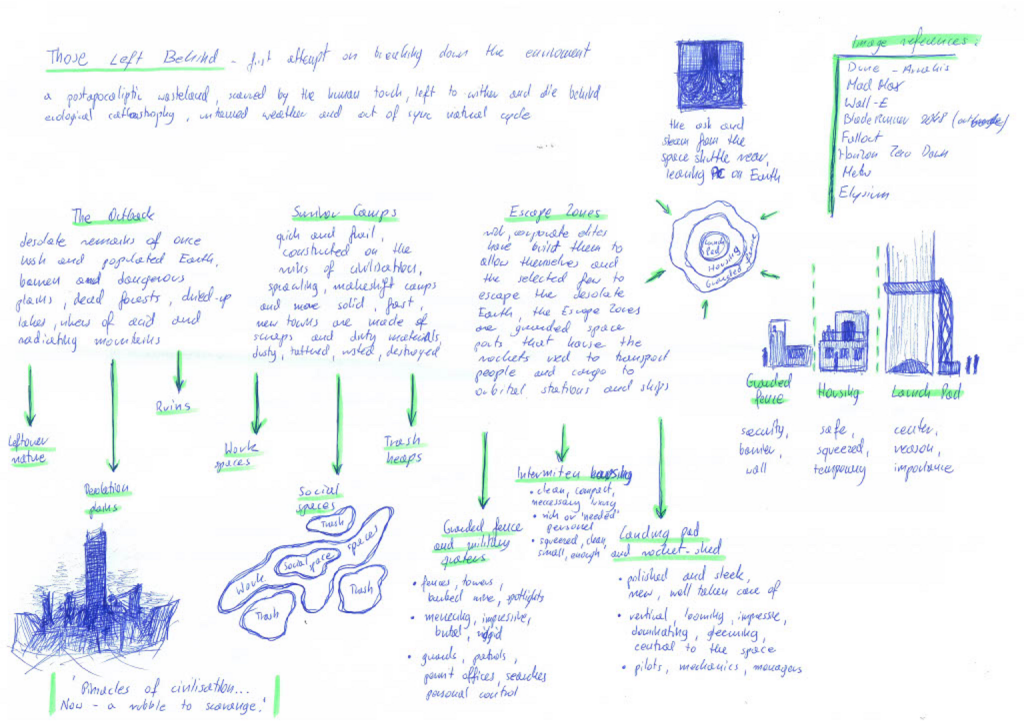 Those Left Behind - first attempt on breaking down the enviroment
a postapocaliptic wasteland, scarred by the human touch, left to wither and die behind
ecological cathastrophy, untamed weather and out of sync natural cycle
the ash and
steam from the
space shuttle near,
leaving PC on Earth
Image references:
Dune - Arrakis
Mad Max
Wall-E
Blade Runner 2048
Fallout
Horizon Zero Dawn
Metro
Elysium
The Outback
desolate remarks of once
lush and populated Earth,
barren and dangerous
plains, dead forests, dried-up
lakes, rivers of acid and
radiating mountains
Leftover
nature
Desolation
plains
Ruins
'Pinnacles of civilisation...
Now - a rubble to scavange.'
Survivor Camps
quick and frail,
constructed on the
ruins of civilisation,
sprawling, makeshift camps
and more solid, fast,
new towns are made of
scraps and dirty materials,
dusty, tattered, rusted, destroyed
Work
spaces
Social
spaces
Trash
heaps
Trash
Work spaces
Social space
Trash
Trash
Escape Zones
rich, corporate elites
have built them to
allow themselves and
the selected few to
escape the desolate
Earth, the Escape Zones
are guarded space
ports that house the
rockets used to transport
people and cargo to
orbital stations and ships
Guarded fence
and military
quaters
• fences, towers,
barbed wire, spotlights
• menecing, impressive,
brutal, rigid
• guards, patrols,
permit offices, searches
personal control
Intermiten housing
• clean, compact,
necessary living
• rich or 'needed'
personel
• squeezed, clean,
small, enough
Landing pad
and rocket-shed
• polished and sleek,
new, well taken care of
• vertical, looming, impressive,
dominating, gleeming,
central to the space
• pilots, mechanics, managers
Launch
Pad
Housing
Guarded fence
Guarded
fence
security,
barrier,
wall
Housing
safe,
squeezed,
temporary
Launch Pad
center,
reason,
importance